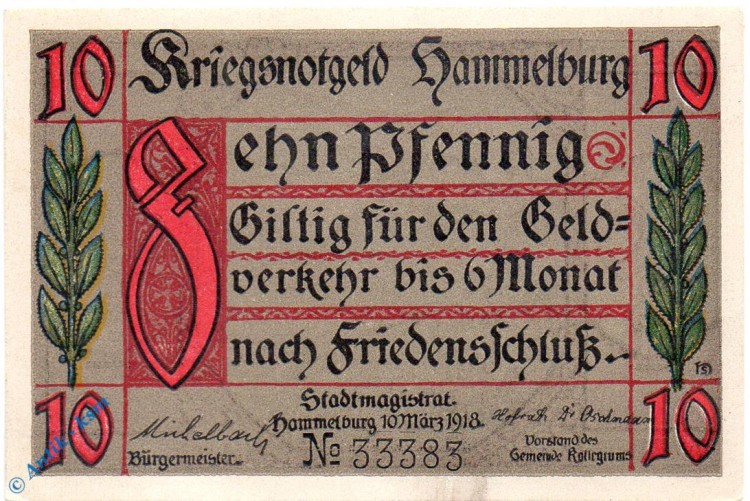 10 Kriegsnotgeld Hammelburg 10
Zehn Pfennig
Giltig für den Geld=
verkehr bis 6 Monat
nach Friedensschluß..
Stadtmagistrat.
10 Hammelburg 10 März 1918. 10
Michelbach Hofrath Dr
Bürgermeister. № 33383 Vorstand des
Gemeinde Kollegiums
FS
© Antik-Kreis